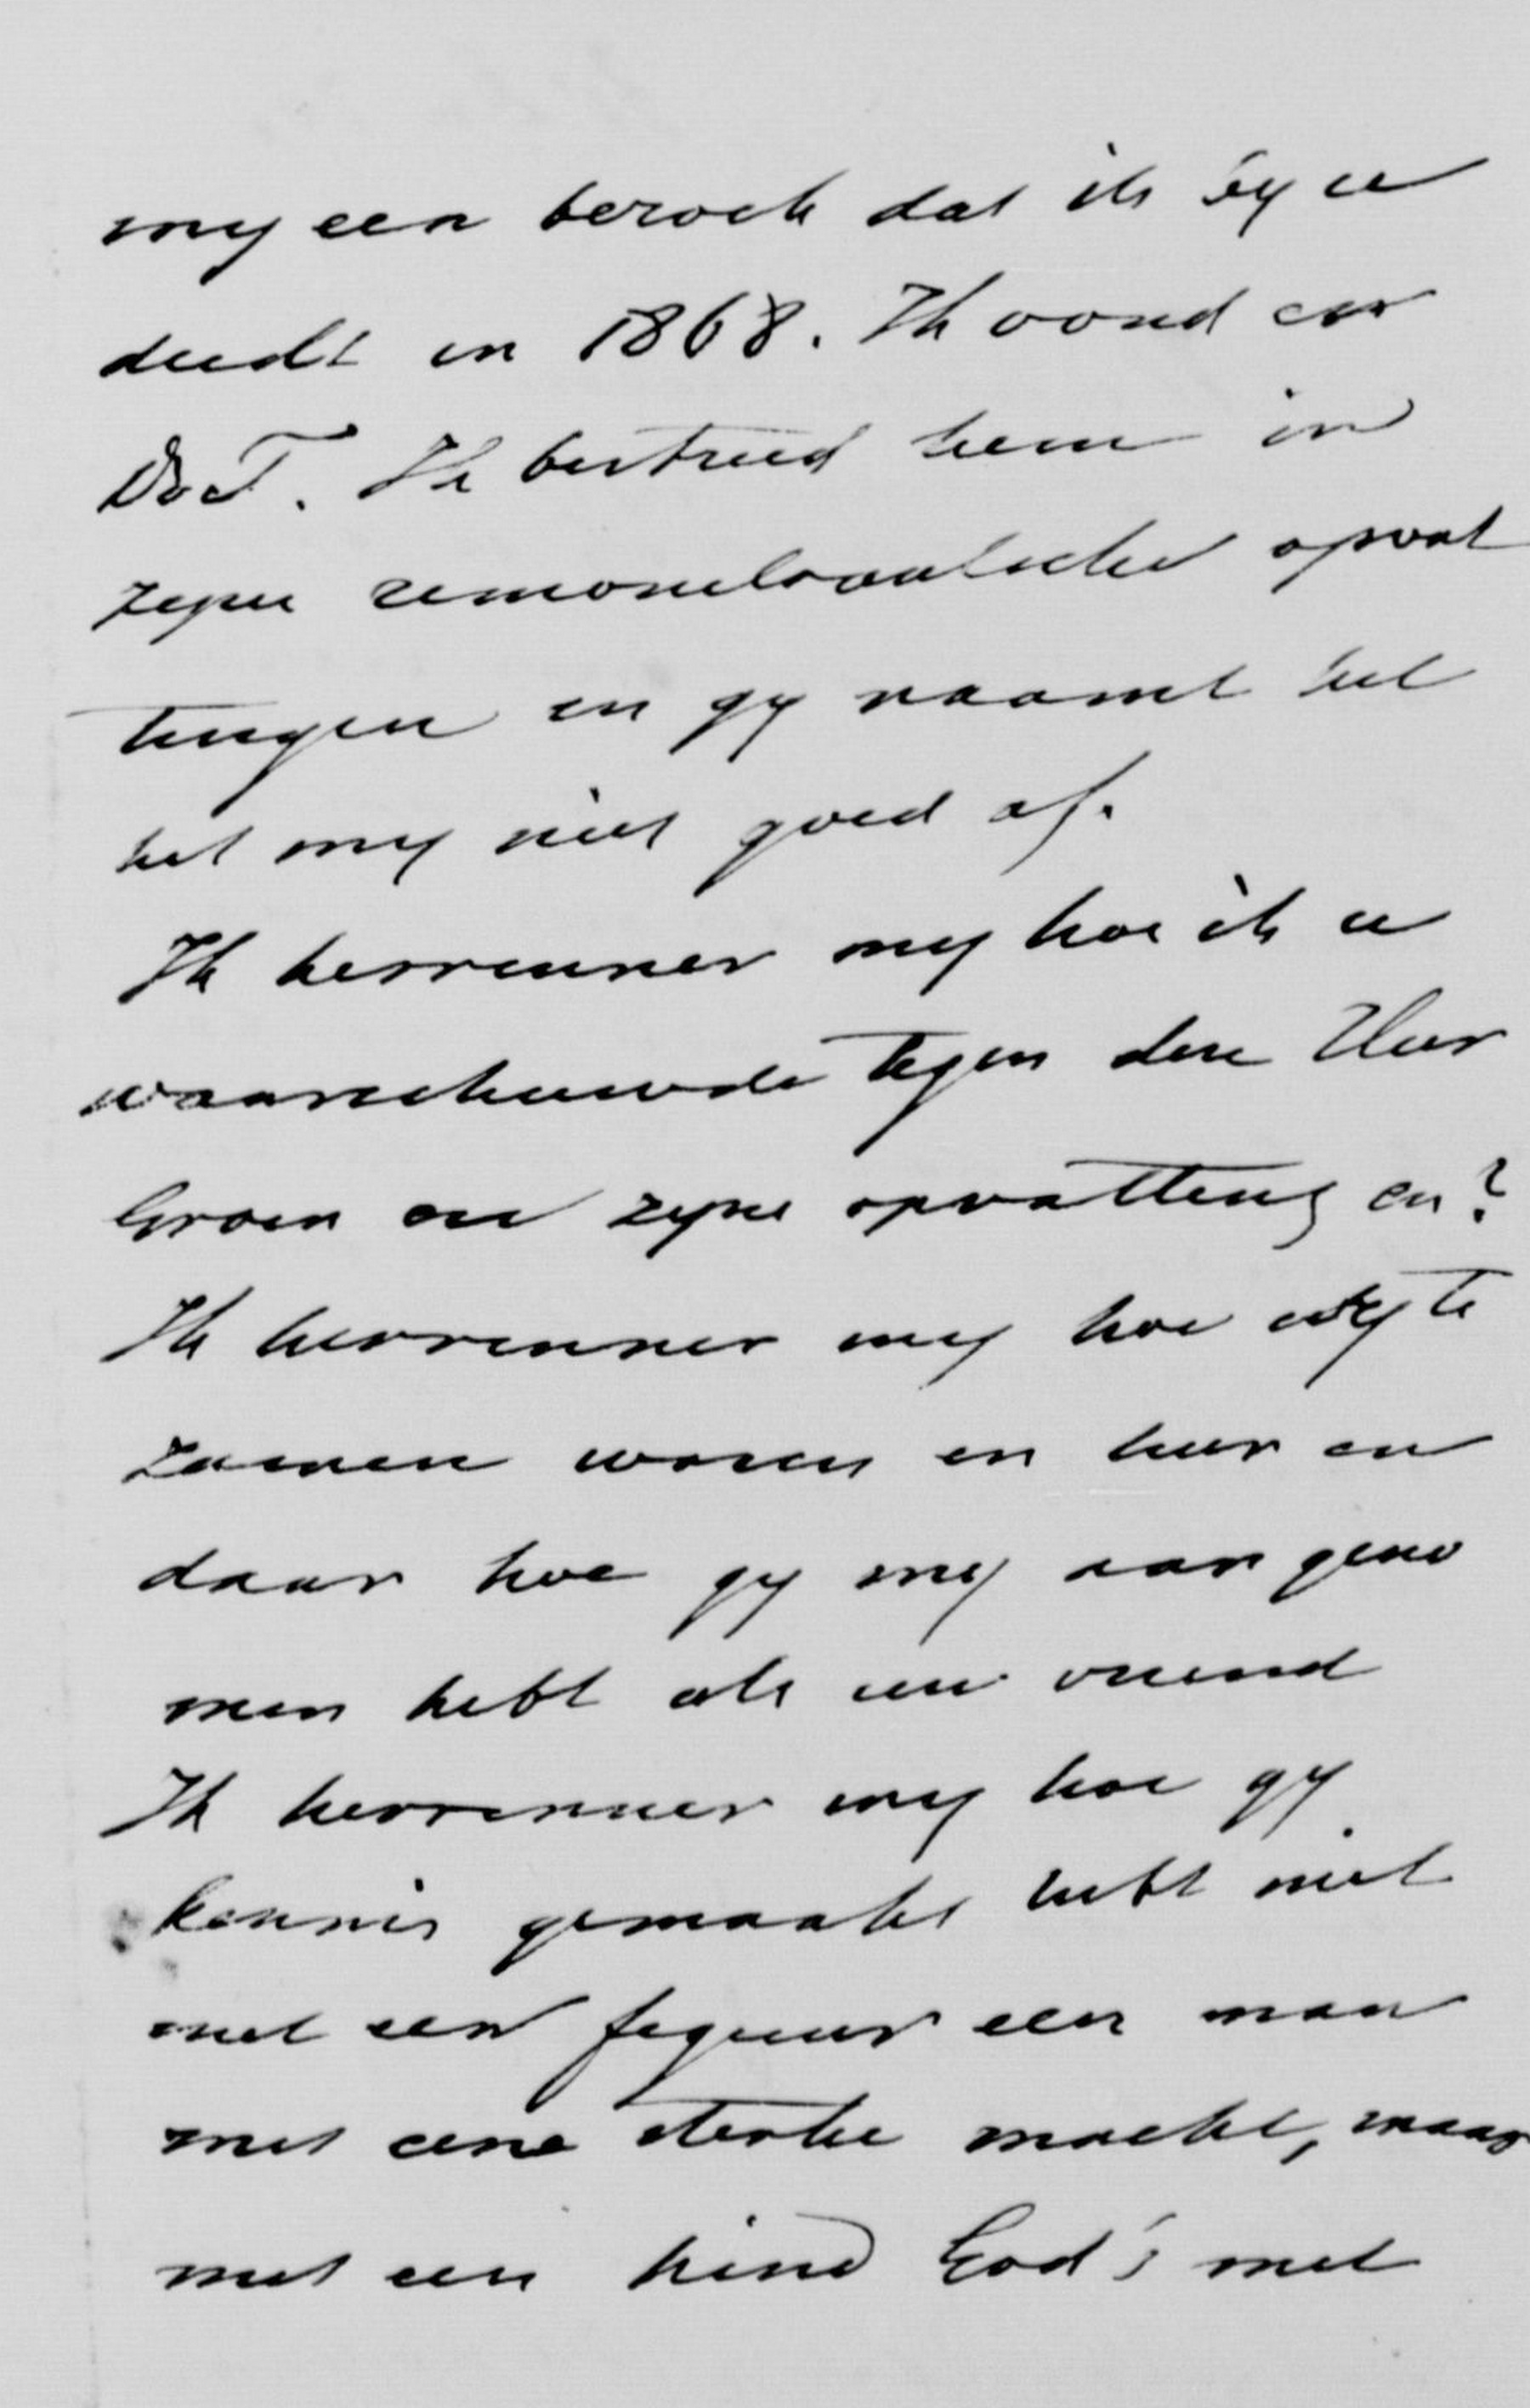 my een bezoek dat ik by u
deedt in 1868. Ik vond er
Ds T. Ik bestreed hem in
zyne remonstrantsche opvat
tingen en gy naamt het
het my niet goed af.
Ik herrenner my hoe ik u
waarschuwde tegen den Heer
Groen en zyne opvatting en?
Ik herrenner my hoe wy te
zamen waren en hier en
daar hoe gy my aan geno
men hebt als uw vriend
Ik herrenner my hoe gy
kennis gemaakt hebt niet
met een figuur een man
met eene sterke macht, maar
met een kind God's met